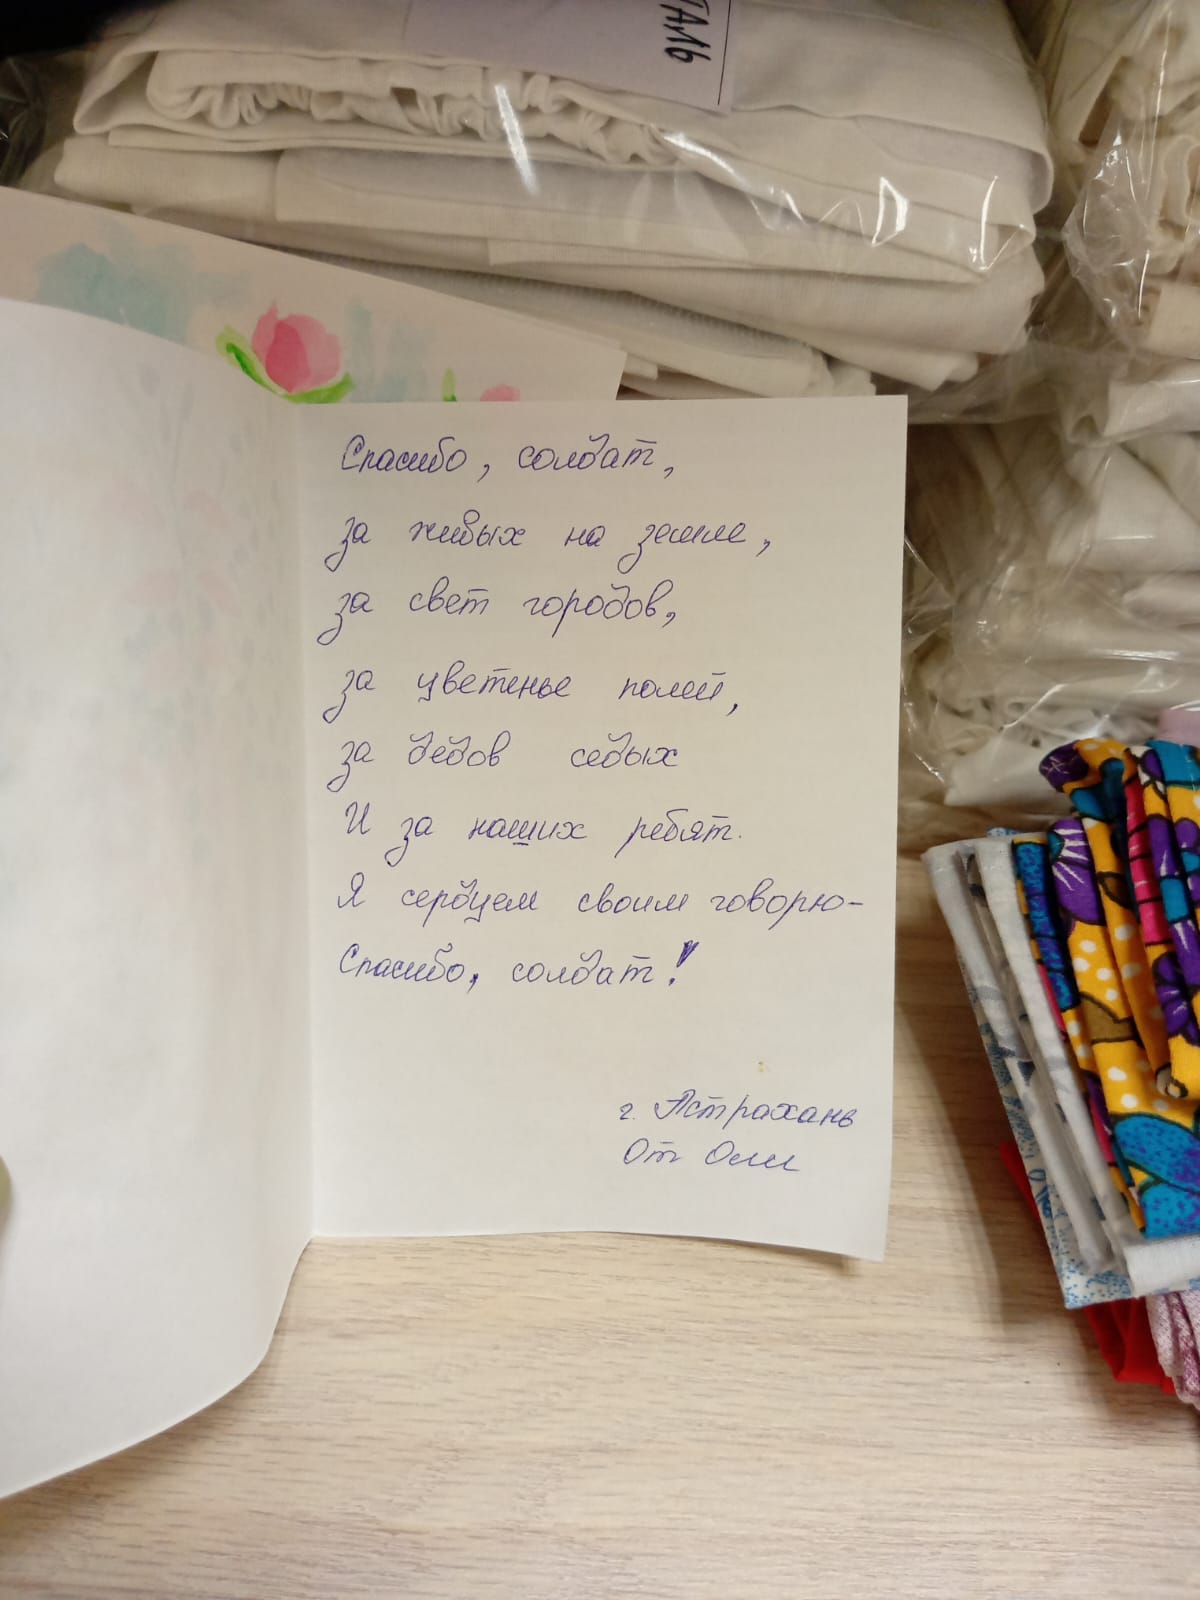 ТАЛЬ
Спасибо, солдат,
за живых на земле,
за свет городов,
за цветенье полей,
за дедов седых
И за наших ребят.
Я сердцем своим говорю-
Спасибо, солдат!
г. Астрахань
От Оли